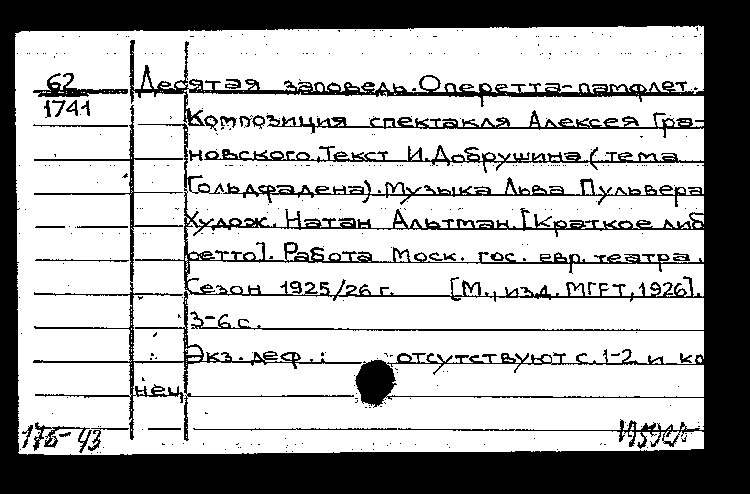 62 Десятая заповедь. Оперетта-памфлет.
1741 Композиция спектакля Алексея Гра-
новского. Текст И. Добрушина (тема
Гольдфадена). Музыка Льва Пульвера
Худож. Натан Альтман. [Краткое либ
ретто]. Работа Моск. гос. евр. театра.
Сезон 1925/26 г. [М., изд. МГЕТ, 1926].
3-6 с.
Экз. деф.: отсутствуют с. 1-2 и ко
нец.
175-43